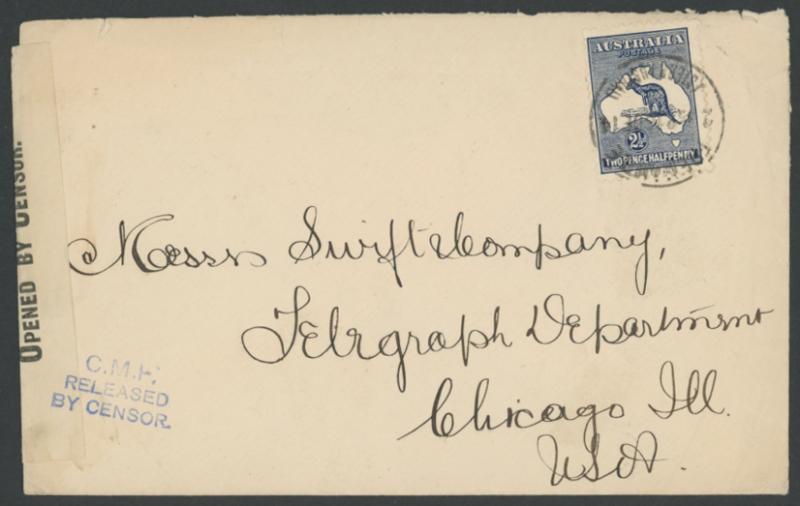 AUSTRALIA
POSTAGE
2½
TWO PENCE HALFPENNY
OPENED BY CENSOR.
Messrs Swift & Company,
Telegraph Department
Chicago Ill.
USA.
C.M.F.
RELEASED
BY CENSOR.